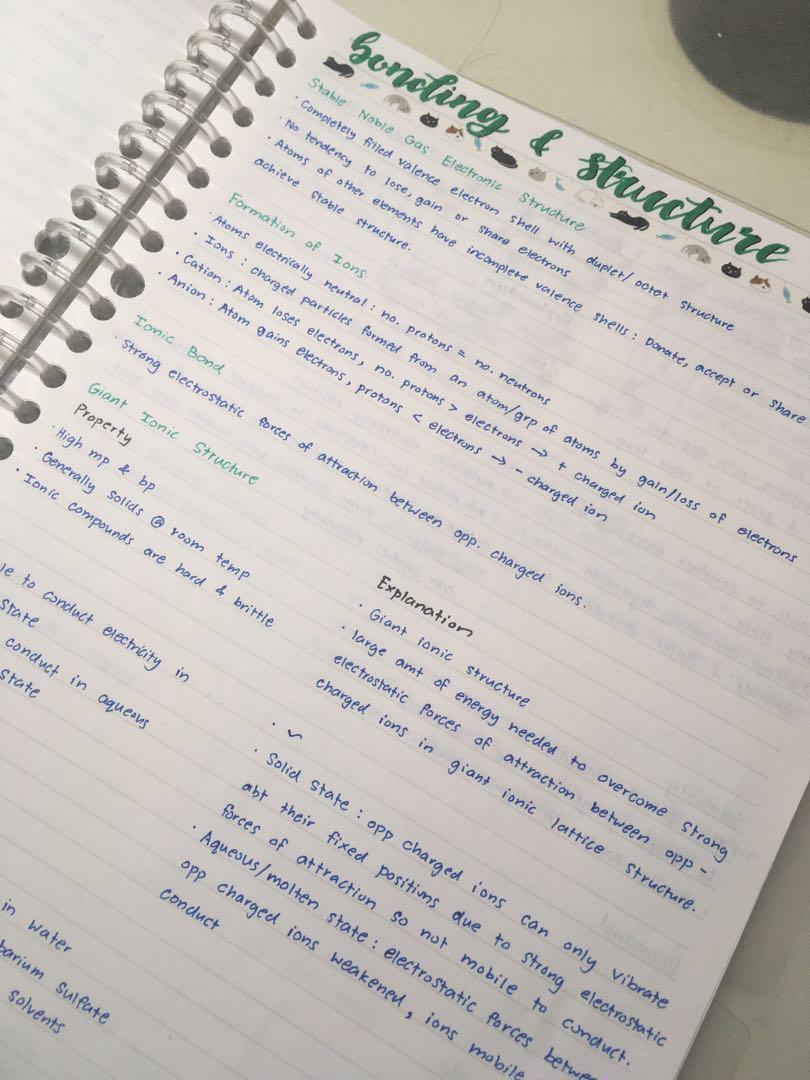 bonding & structure
Stable Noble Gas Electronic Structure
· Completely filled valence electron shell with duplet/octet structure
· No tendency to lose, gain or share electrons
· Atoms of other elements have incomplete valence shells : Donate, accept or share
achieve stable structure.
Formation of Ions
· Atoms electrically neutral : no. protons = no. neutrons
· Ions : charged particles formed from an atom/grp of atoms by gain/loss of electrons
· Cation : Atom loses electrons, no. protons > electrons → + charged ion
· Anion : Atom gains electrons, protons < electrons → - charged ion
Ionic Bond
· Strong electrostatic forces of attraction between opp. charged ions.
Giant Ionic Structure
Property
· High mp & bp
· Generally solids @ room temp
· Ionic compounds are hard & brittle
le to conduct electricity in
state
conduct in aqueous
state
in water
barium sulfate
solvents
Explanation
· Giant ionic structure
· large amt of energy needed to overcome strong
electrostatic forces of attraction between opp-
charged ions in giant ionic lattice structure.
· Solid state : opp charged ions can only vibrate
abt their fixed positions due to strong electrostatic
forces of attraction so not mobile to conduct.
· Aqueous/molten state : electrostatic forces betwee
opp charged ions weakened, ions mobile
conduct